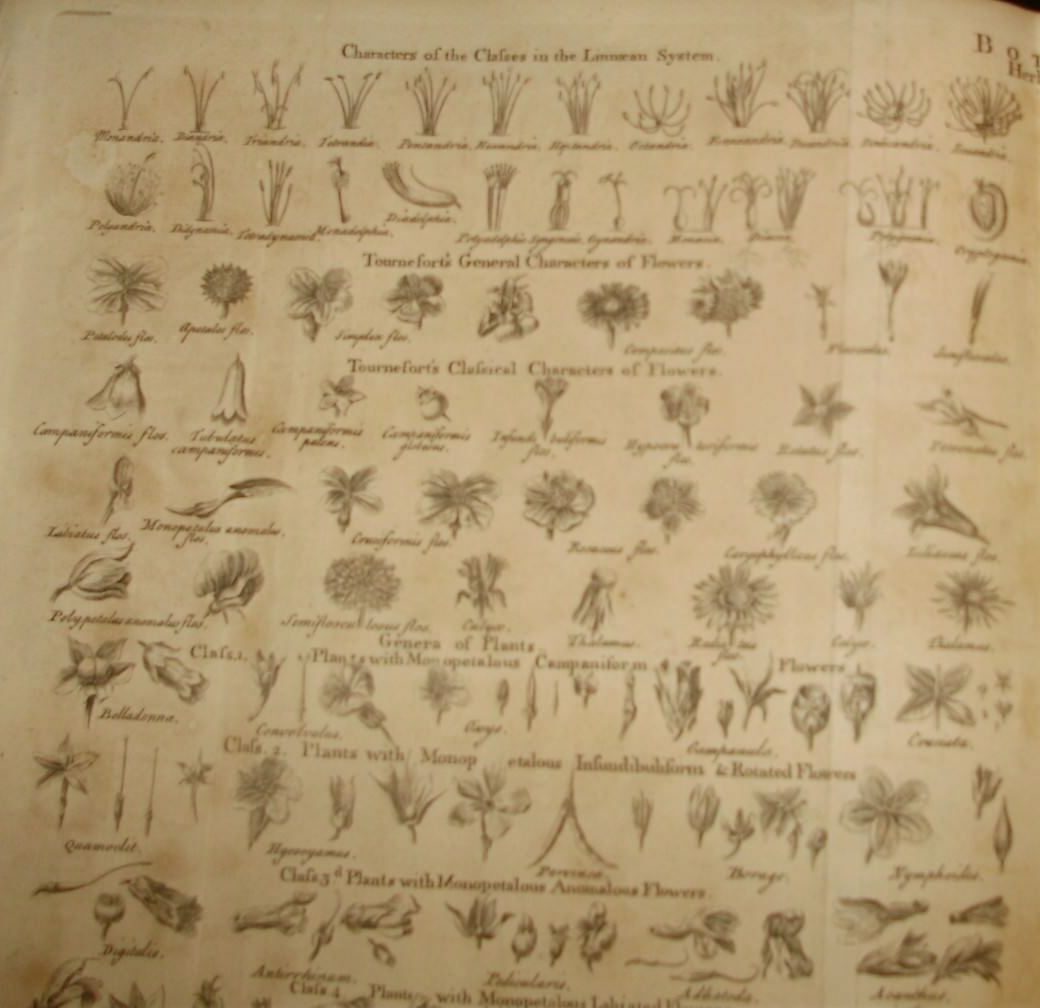 Characters of the Claſses in the Linnæan System.
B O T
Her
Monandria. Diandria. Triandria. Tetrandia. Pentandria. Hexandria. Heptandria. Octandria. Enneandria. Decandria.
Polyandria. Didynamia. Tetradynamia. Monadelphia. Diadelphia. Polyadelphia Syngenesia. Gynandria. Monœcia. Polygamia. Cryptogamia.
Tournefort's General Characters of Flowers.
Petalodes flos. Apetalos flos. Simplex flos. Compositus flos. Flosculus. Semiflosculus.
Tournefort's Claſsical Characters of Flowers.
Campaniformis flos. Tubulatus campaniformis. Campaniformis patens. Campaniformis globosus. Infundibuliformis flos. Hypocrateriformis flos. Rotatus flos. Personatus flos.
Labiatus flos. Monopetalus anomalus flos. Cruciformis flos. Rosaceus flos. Caryophylleus flos. Liliaceus flos.
Polypetalus anomalus flos. Semiflosculosus flos. Calyx. Thalamus. Radiatus flos. Calyx. Thalamus.
Genera of Plants
Claſs.1. Plants with Monopetalous Campaniform Flowers
Belladonna. Convolvulus. Campanula.
Claſs. 2. Plants with Monopetalous Infundibuliform & Rotated Flowers
Quamoclit. Hyoscyamus. Pervinca. Borago. Nymphoides.
Claſs 3ᵈ Plants with Monopetalous Anomalous Flowers.
Digitalis. Antirrhinum. Pedicularis. Adhatoda. Acanthus.
Claſs.4 Plants with Monopetalous Labiated